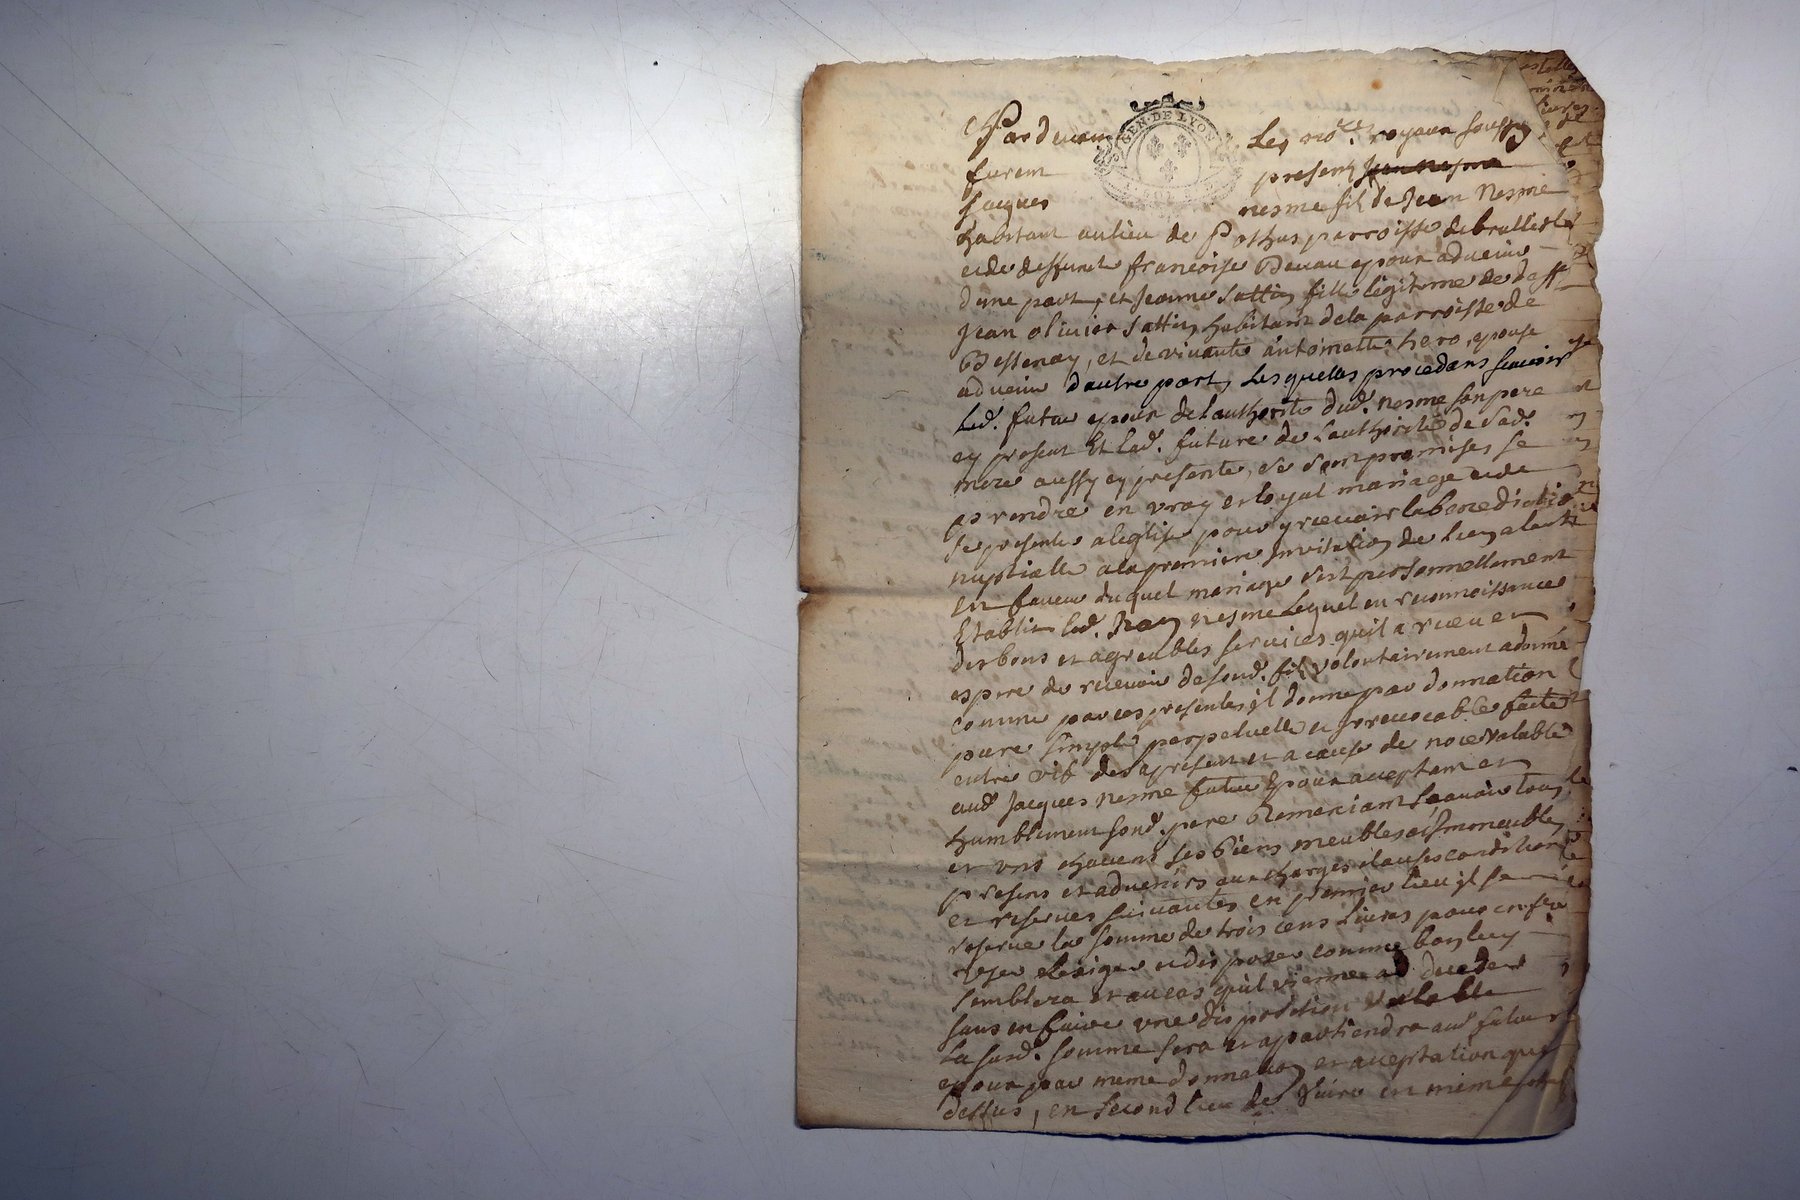 GEN. DE LYON
Pardevant Les no.res royaux soussig
furent present Jean nesme
Jacques nesme fils de Jean Nesme
habitant au lieu de Pothus parroisse de brullioles
et de deffunct francoise Benau epoux advenir
dune part, et Jeanne Sattin fille legitime de deff
Jean olivier Sattin habitant dela parroisse de
Bessenay, et de vivante antoinette hero, epouse
advenir d'autre part, Lesquelles procedans scavoir
Led. futur epoux de l'authorité dud. nesme son pere
cy present Et Lad. future de l'authorité de Sad.
mere aussy cy presente, se sont promises se
prendre en vray et loyal mariage et de
se presenter a leglise pour y recevoir la benediction
nuptialle a la premiere invitation de lun a lautre
en faveur duquel mariage s'est personnellement
Etablit led. Jean nesme Lequel en reconnoissance
des bons et agreables services quil a receu et
espere de recevoir de sond. fils volontairement a donné
comme par ces presentes il donne par donnation
pure simple perpetuelle et irrevocable faite
entre vifs des a present et a cause de noce valable
aud. Jacques nesme futur Epoux acceptant et
humblement sond. pere Remerciant Scavoir tous
et uns chacuns ses Biens meubles et immeubles
presens et advenirs aux charges clauses condition
et reserves suivantes en premier lieu il se
reserve la somme de trois cens Livres pour en
user Eriger et disposer comme bon luy
semblera et au cas qu'il vienne a deceder
sans en faire une disposition valable
La susd. somme sera et apartiendra aud. futur
epoux par meme donnation et acceptation que
dessus, en second lieu de vivre en meme